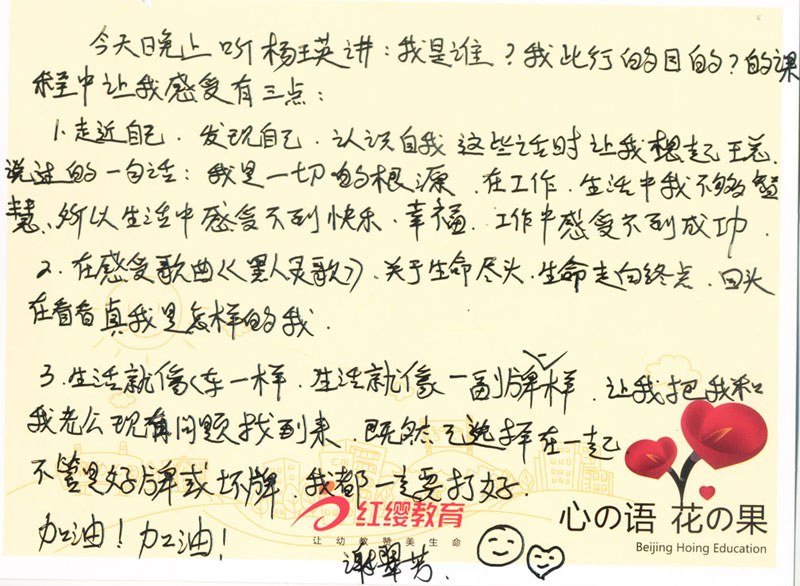 今天晚上听杨玉英讲：我是谁？我此行的目的？的课
程中让我感受有三点：
1.走近自己．发现自己．认识自我 这些话时让我想起王总．
说过的一句话：我是一切的根源．在工作．生活中我不够智
慧、所以生活中感受不到快乐．幸福．工作中感受不到成功．
2．在感受歌曲《黑人灵歌》．关于生命尽头．生命走向终点．回头
在看看真我是怎样的我．
3．生活就像车一样．生活就像一副牌一样．让我把我和
我老公现有问题找到来．既然已选择在一起
不管是好牌或坏牌．我都一定要打好．
加油！加油！
谢翠芳．
红缨教育
让幼教赞美生命
心の语 花の果
Beijing Hoing Education